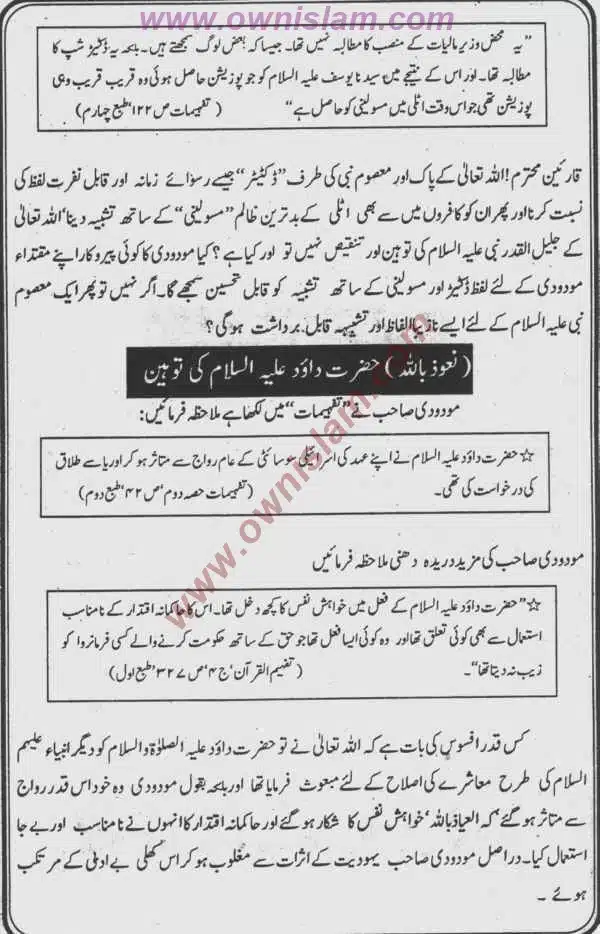 www.ownislam.com
"یہ محض وزیر مالیات کے منصب کا مطالبہ نہیں تھا۔ جیسا کہ بعض لوگ سمجھتے ہیں۔ بلکہ یہ ڈکٹیٹر شپ کا
مطالبہ تھا۔ اور اس کے نتیجے میں سیدنا یوسف علیہ السلام کو جو پوزیشن حاصل ہوئی وہ قریب قریب وہی
پوزیشن تھی جو اس وقت اٹلی میں مسولینی کو حاصل ہے" ( تفہیمات ص ۱۲۲' طبع چہارم)
قارئین محترم! اللہ تعالیٰ کے پاک اور معصوم نبی کی طرف "ڈکٹیٹر" جیسے رسوائے زمانہ اور قابل نفرت لفظ کی
نسبت کرنا اور پھر ان کو کافروں میں سے بھی اٹلی کے بدترین ظالم "مسولینی" کے ساتھ تشبیہ دینا' اللہ تعالیٰ
کے جلیل القدر نبی علیہ السلام کی توہین اور تنقیص نہیں تو اور کیا ہے؟ کیا مودودی کا کوئی پیروکار اپنے مقتداء
مودودی کے لئے لفظ ڈکٹیٹر اور مسولینی کے ساتھ تشبیہ کو قابل تحسین سمجھے گا۔ اگر نہیں تو پھر ایک معصوم
نبی علیہ السلام کے لئے ایسے نازیبا الفاظ اور تشبیہہ قابل برداشت ہوگی؟
(نعوذ باللہ) حضرت داؤد علیہ السلام کی توہین
مودودی صاحب نے "تفہیمات" میں لکھا ہے ملاحظہ فرمائیں:
☆ حضرت داؤد علیہ السلام نے اپنے عہد کی اسرائیلی سوسائٹی کے عام رواج سے متاثر ہو کر اوریا سے طلاق
کی درخواست کی تھی۔ (تفہیمات حصہ دوم' ص ۴۲' طبع دوم)
مودودی صاحب کی مزید دریدہ دھنی ملاحظہ فرمائیں
☆ "حضرت داؤد علیہ السلام کے فعل میں خواہش نفس کا کچھ دخل تھا۔ اس کا حاکمانہ اقتدار کے نامناسب
استعمال سے بھی کوئی تعلق تھا اور وہ کوئی ایسا فعل تھا جو حق کے ساتھ حکومت کرنے والے کسی فرمانروا کو
زیب نہ دیتا تھا"۔ (تفہیم القرآن' ج ۴' ص ۳۲۷' طبع اول)
کس قدر افسوس کی بات ہے کہ اللہ تعالیٰ نے تو حضرت داؤد علیہ الصلوٰۃ والسلام کو دیگر انبیاء علیہم
السلام کی طرح معاشرے کی اصلاح کے لئے مبعوث فرمایا تھا اور بلکہ بقول مودودی وہ خود اس قدر رواج
سے متاثر ہو گئے' کہ العیاذ باللہ' خواہش نفس کا شکار ہو گئے اور حاکمانہ اقتدار کا انہوں نے نامناسب اور بے جا
استعمال کیا۔ در اصل مودودی صاحب یہودیت کے اثرات سے مغلوب ہو کر اس کھلی بے ادبی کے مرتکب
ہوئے ۔
www.ownislam.com